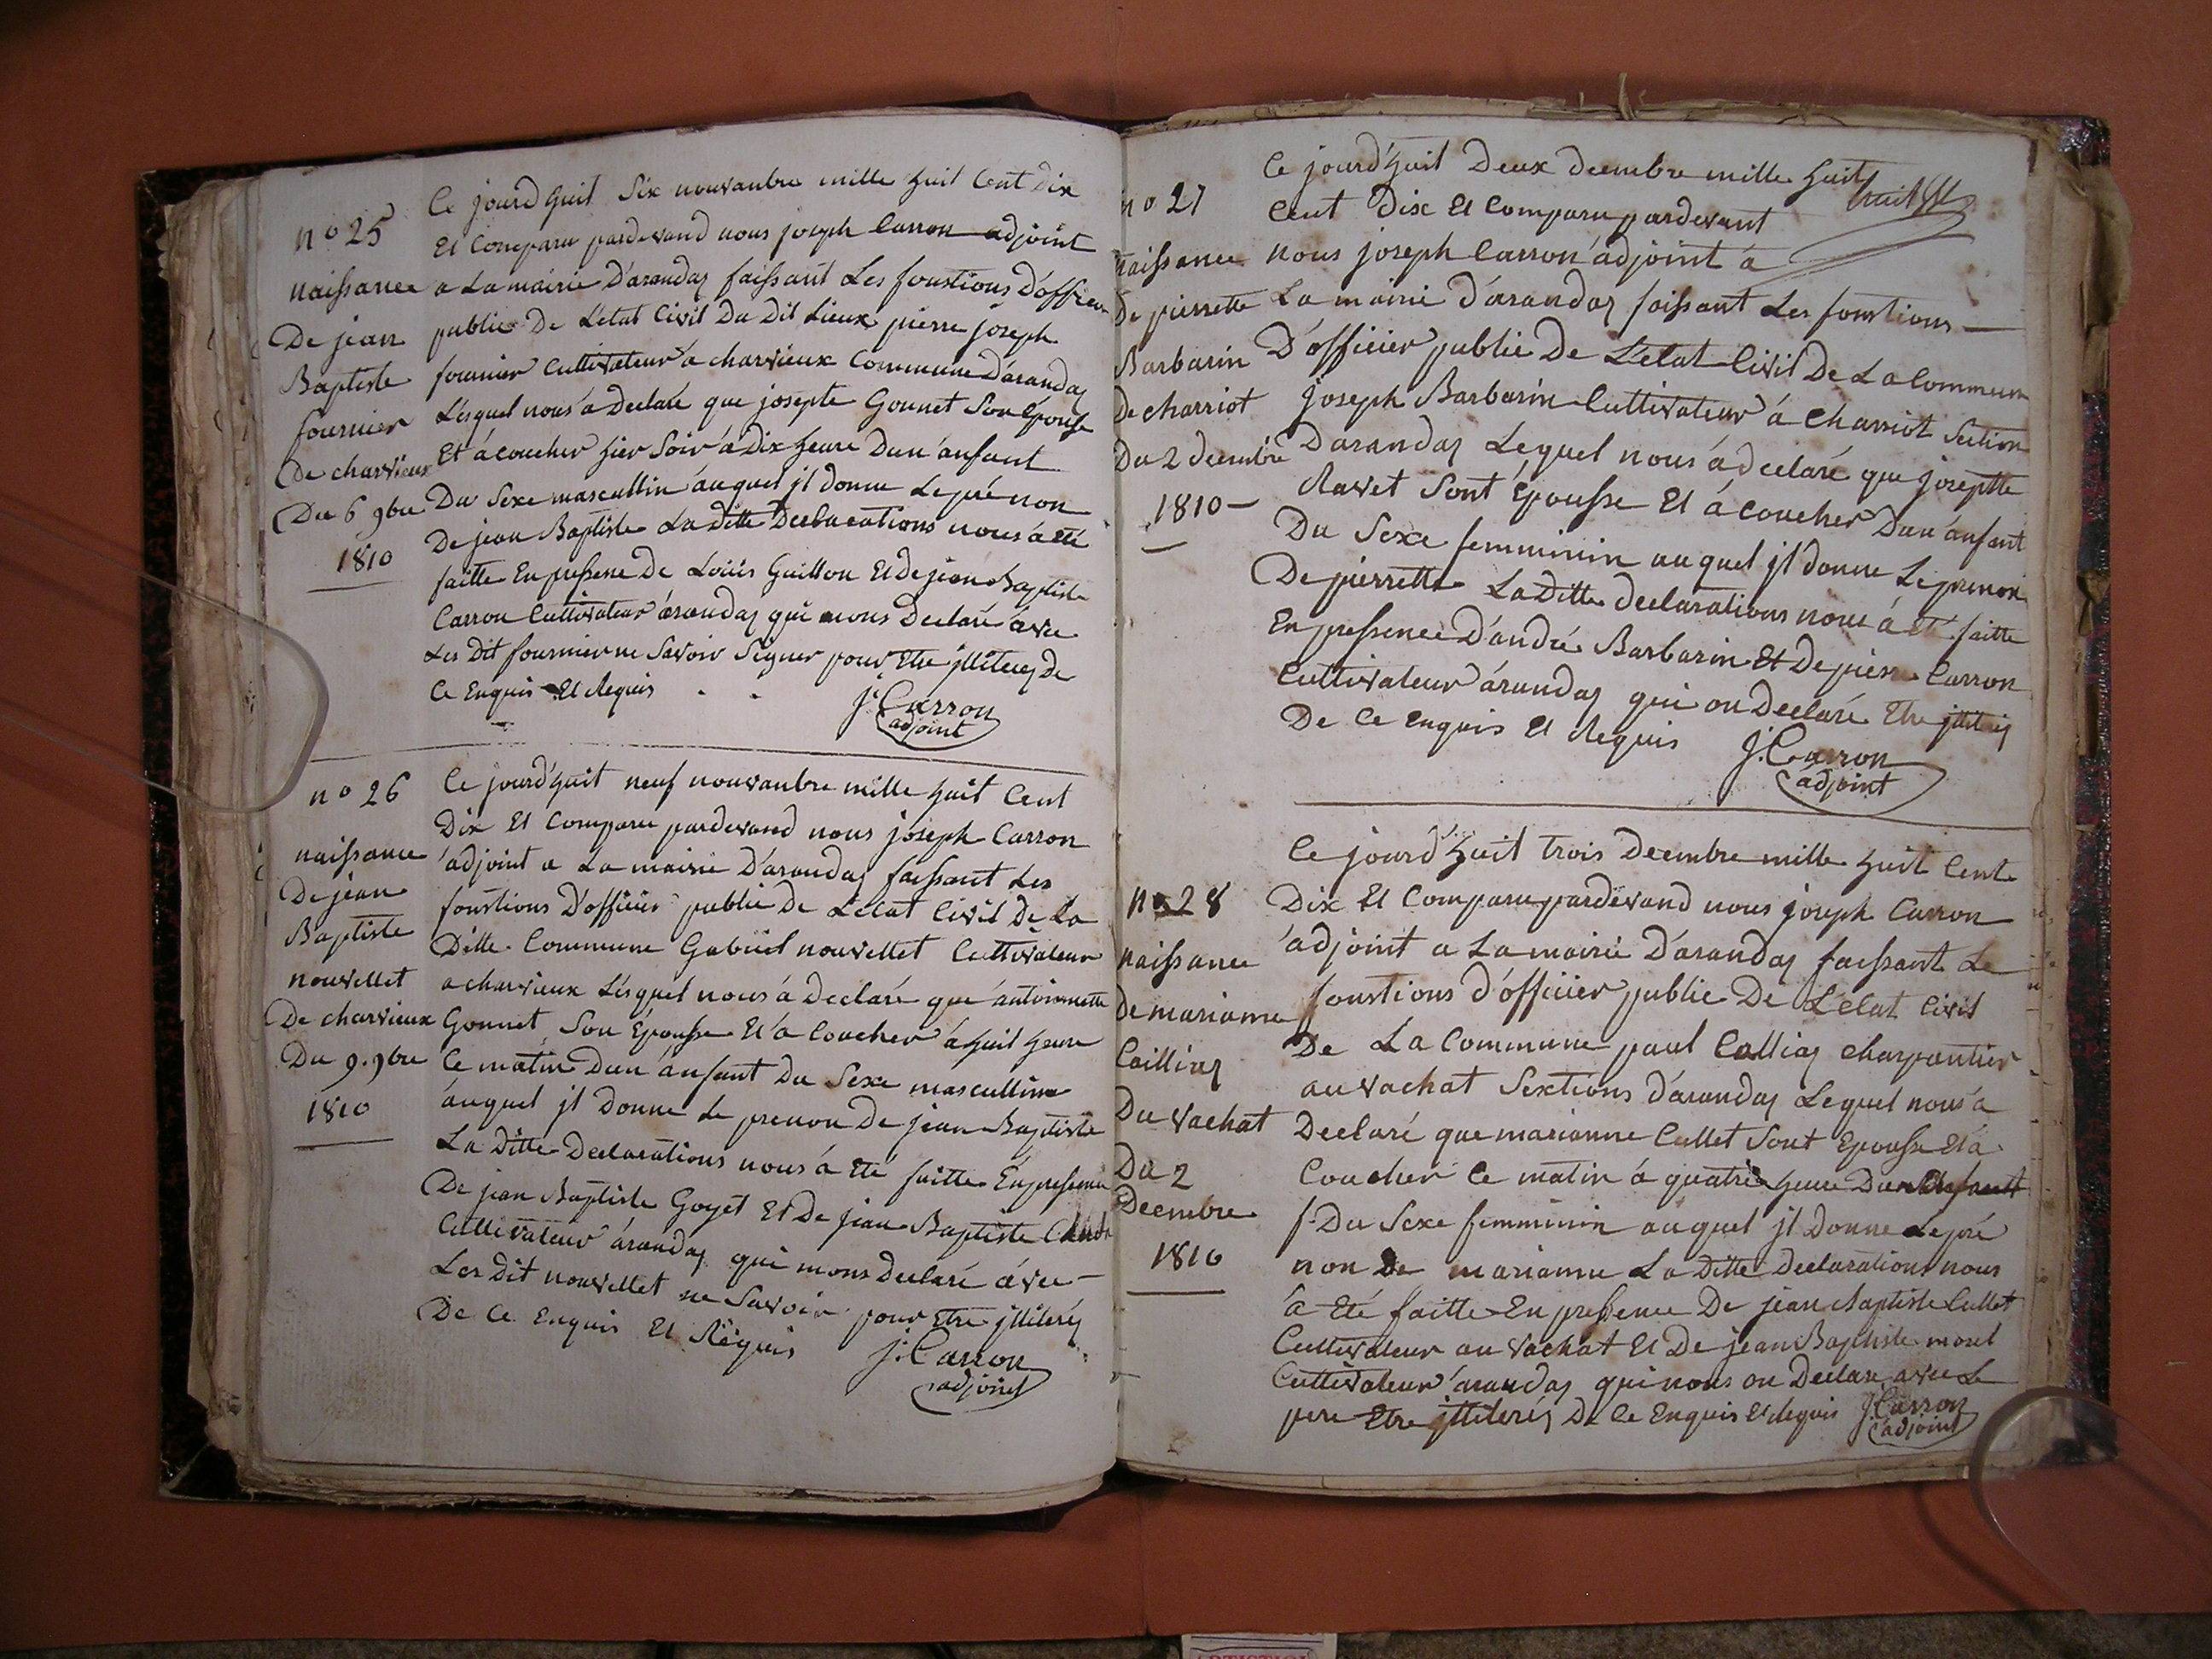 n° 25
naissance
De jean
Baptiste
fournier
De charvieux
Du 6 9bre
1810
Ce jourd huit Six nouvanbre mille huit Cent dix
Et Comparu pardevand nous joseph Carron adjoint
a La mairie D'arandas faissant Les fonstions D'officier
publie De L'etat Civil Du Dit Lieux pierre joseph
fournier Cultivateur a charvieux Commune D'arandas
Lesquel nous a Declaré que josepte Gonnet Son Épouse
Et á coucher hier Soir á Dix heure Dun anfant
Du Sexe mascullin auquel jl donne Le pré non
De jean Baptiste La ditte Declarations nous a été
faitte En pressene De Loüis Guillon Et De jean Baptiste
Carron Cultivateur arandas qui nous Declaré avec
Les Dit fournier ne Savoir Signer pour Etre jlliterez de
Ce Enquis Et Requis
J. Carron
adjoint
n° 26
naissance
De jean
Baptiste
nouvellet
De charvieux
Du 9. 9bre
1810
Ce jourd'huit neuf nouvanbre mille huit Cent
Dix Et Comparu pardevand nous joseph Carron
adjoint a La mairie D'arandas faissant Les
fonstions D'officier publie De L'etat Civil De La
Ditte Commune Gabriel nouvellet Cultivateur
a charvieux Lésquel nous á Declaré que antoinnette
Gonnet Son Épousse Et a Coucher á huit heure
Ce matin Dun anfant Du Sexe mascullin
auquel jl Donne Le prenon De jean Baptiste
La Ditte Declarations nous á Eté faitte Enpressence
De jean Baptiste Goyet Et De jean Baptiste
Cultivateur árandas qui mons Declaré ávec
Les Dit nouvellet ne Savoir pour Etre jlliteréz
De Ce Enquis Et Réquis
J. Carron
adjoint
n° 27
naissance
De pierrette
Barbarin
De charriot
Du 2 decembre
1810
Ce jourd'huit Deux decembre mille huit
Cent Dix Et Comparu pardevant
nous joseph Carron adjoint á
La mairie D'arandas faissant Les fonstions
D'officier publie De L'etat Civil De La Commune
joseph Barbarin Cultivateur á Charriot Section
Darandas Lequel nous á declaré que joseptte
Ravet Sont Épousse Et á coucher Dun anfant
Du Sexe femminin auquel jl donne Le prenon
De pierrette La Ditte declarations nous á été faitte
En pressence D'andré Barbarin Et De pierre Carron
Cultivateur árandas qui on Declaré Etre jlliteréz
De Ce enquis Et Requis
J. Carron
adjoint
n° 28
naissance
De marianne
Cailliaz
Du vachat
Du 2
Decembre
1810
Ce jourd'huit trois Decembre mille huit Cent
Dix Et Comparu pardevand nous joseph Carron
adjoint a La mairie D'arandas faissant Le
fonstions d'officier publie De L'etat Civil
De La Commune paul Calliaz charpantier
au vachat Sextions d'arandas Lequel nous á
Declaré que marianne Cullet Sont Epousse Et á
Coucher Ce matin á quatrie heure Dun Enfant
f. Du Sexe femminin auquel jl Donne Le pré
non De marianne La Ditte Declarations nous
á Eté faitte En pressence De jean Baptiste Cullet
Cultivateur au vachat Et De jean Baptiste morel
Cultivateur arandas qui nous on Declaré avec Le
pere Etre jlliteréz De Ce Enquis Et Requis
J. Carron
adjoint